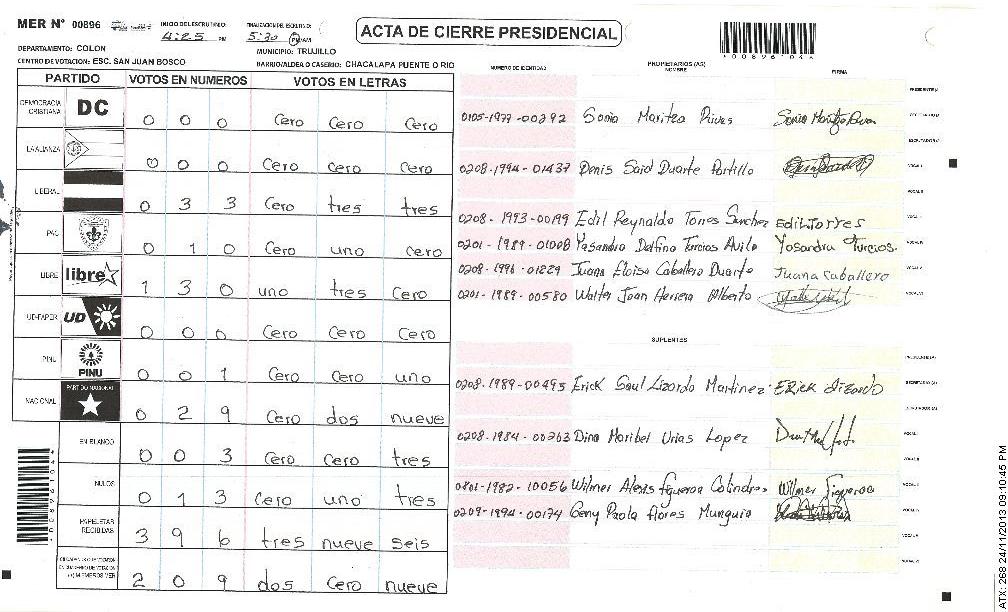 MER N° 00896
INICIO DEL ESCRUTINIO:
4:25 PM
FINALIZACION DEL ESCRUTINIO:
5:30 PM/AM
ACTA DE CIERRE PRESIDENCIAL
DEPARTAMENTO: COLON
MUNICIPIO: TRUJILLO
CENTRO DE VOTACION: ESC. SAN JUAN BOSCO
BARRIO/ALDEA O CASERIO: CHACALAPA PUENTE O RIO
PARTIDO VOTOS EN NUMEROS VOTOS EN LETRAS
DEMOCRACIA CRISTIANA DC 0 0 0 Cero Cero Cero
LA ALIANZA 0 0 0 Cero Cero Cero
LIBERAL 0 3 3 Cero tres tres
PAC 0 1 0 Cero uno cero
LIBRE libre 1 3 0 uno tres Cero
UD-FAPER UD 0 0 0 Cero Cero Cero
PINU PINU 0 0 1 Cero Cero uno
NACIONAL PARTIDO NACIONAL 0 2 9 Cero dos nueve
EN BLANCO 0 0 3 Cero Cero tres
NULOS 0 1 3 Cero uno tres
PAPELETAS RECIBIDAS 3 9 6 tres nueve seis
2 0 9 dos Cero nueve
NUMERO DE IDENTIDAD PROPIETARIOS (AS) NOMBRE FIRMA
0105-1977-00292 Sonia Maritza Rivas
0208-1994-01437 Denis Said Duarte Portillo
0208-1993-00199 Edil Reynaldo Torres Sanchez Edil Torres
0201-1989-01008 Yosandra Delfina Turcios Avila Yosandra Turcios
0208-1996-01229 Juana Eloisa Caballero Duarte Juana Caballero
0201-1989-00580 Walter Joan Herrera Alberto
SUPLENTES
0208-1989-00495 Erick Saul Lizardo Martinez Erick Lizardo
0208-1984-00263 Dina Maribel Urias Lopez
0801-1982-10056 Wilmer Alexis Figueroa Colindres Wilmer Figueroa
0209-1994-00174 Geny Paola Flores Munguia
ATX: 268 24/11/2013 09:10:45 PM